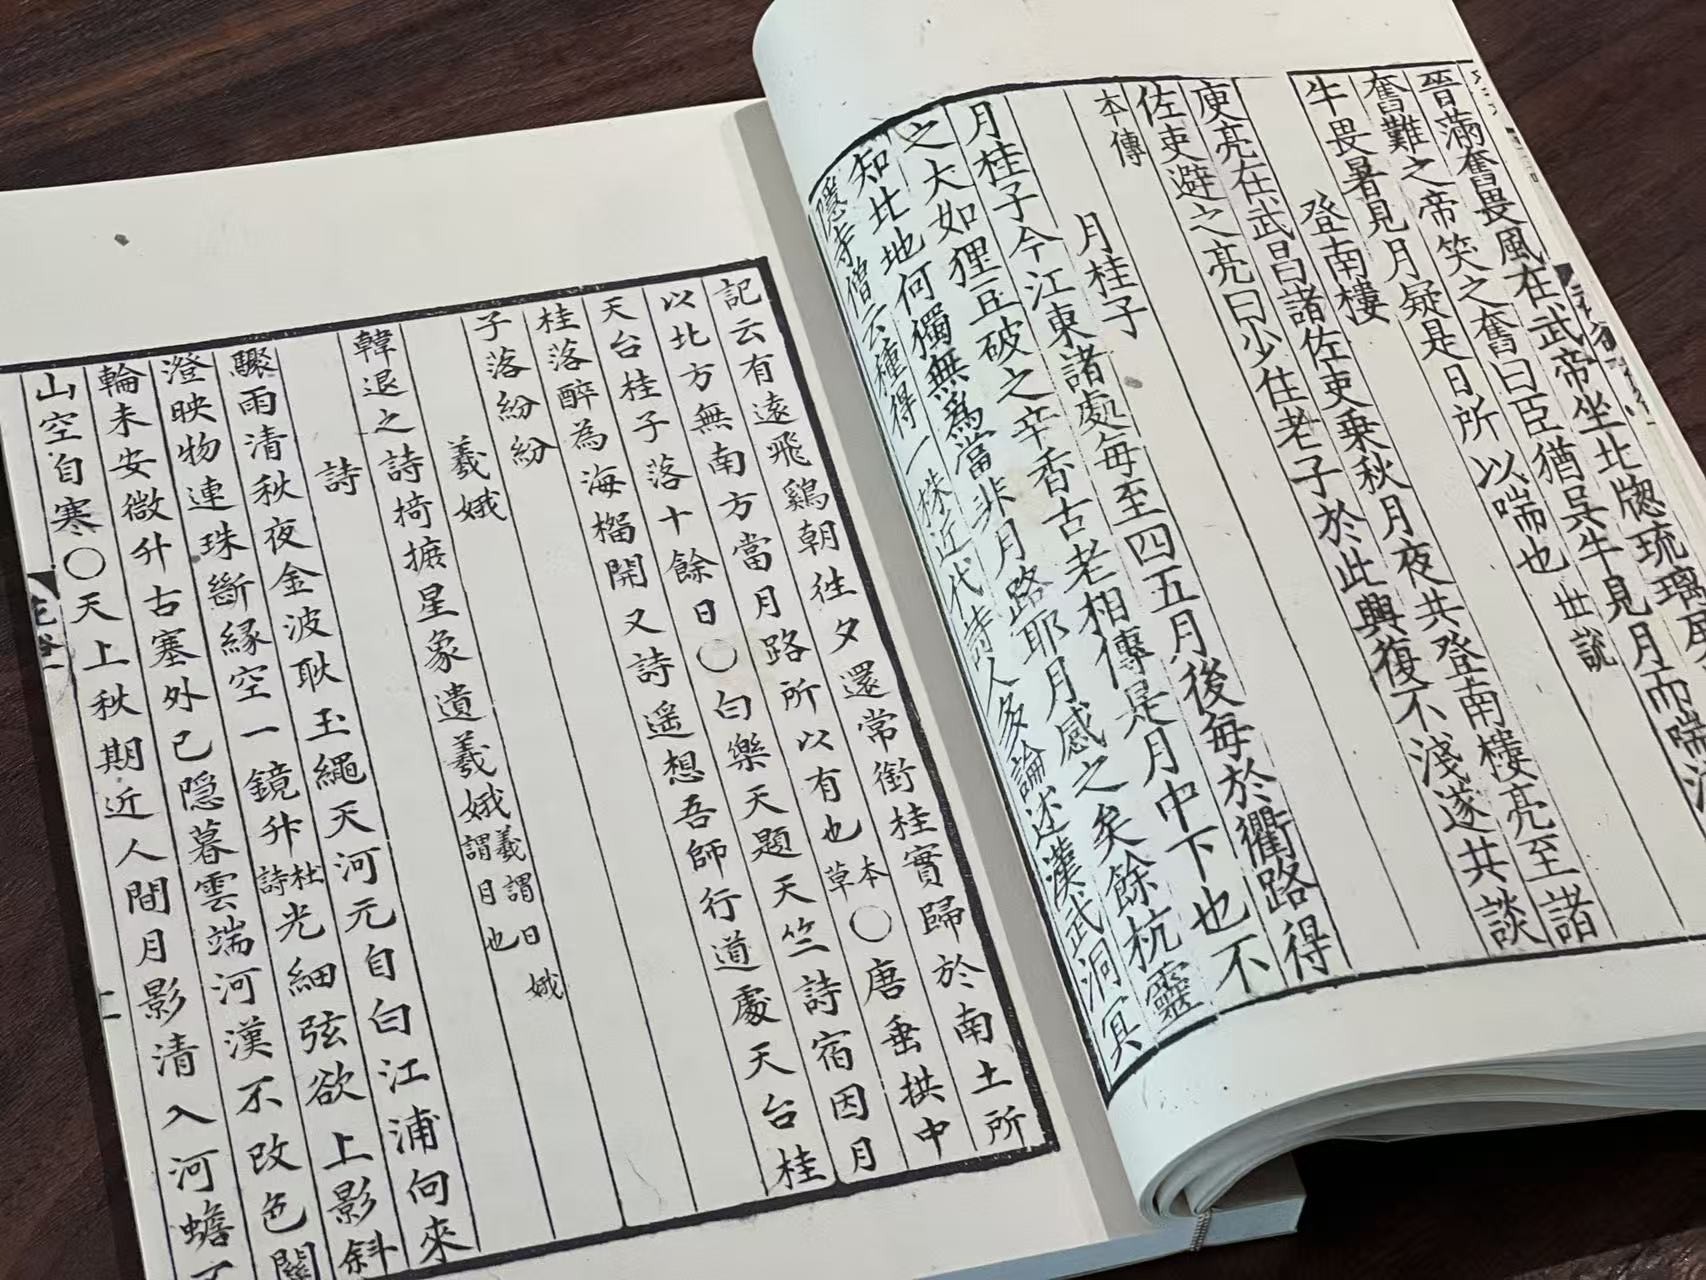 晉滿奮畏風在武帝坐北牎琉璃
奮難之帝笑之奮曰臣猶吳牛見月而喘
牛畏暑見月疑是日所以喘也世說
登南樓
庾亮在武昌諸佐吏乗秋月夜共登南樓亮至諸
佐吏避之亮曰少住老子於此興復不淺遂共談
本傳
月桂子
月桂子今江東諸處毎至四五月後毎於衢路得
之大如狸豆破之辛香古老相傳是月中下也不
知北地何獨無爲當非月路耶月感之矣餘杭靈
隱寺僧云種得一株近代詩人多論述漢武洞冥
記云有遠飛鷄朝徃夕還常銜桂實歸於南土所
以北方無南方當月路所以有也本草〇唐垂拱中
天台桂子落十餘日〇白樂天題天竺詩宿因月
桂落醉為海榴開又詩遥想吾師行道處天台桂
子落紛紛
羲娥
韓退之詩掎摭星象遺羲娥羲謂日娥謂月也
詩
驟雨清秋夜金波耿玉繩天河元自白江浦向來
澄映物連珠斷緣空一鏡升杜詩光細弦欲上影斜
輪未安微升古塞外已隠暮雲端河漢不改色關
山空自寒〇天上秋期近人間月影清入河蟾